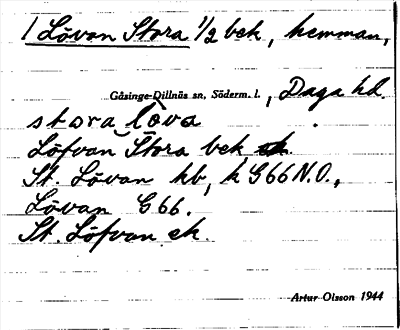 1 Lövan Stora 1/2 bek, hemman,
Gåsinge-Dillnäs sn, Söderm. l., Daga hd.
stora lova
Löfvan Stora bek
St. Lövan hb, h G66 N.O.,
Lövan G 66.
St. Löfvan ek.
Artur Olsson 1944